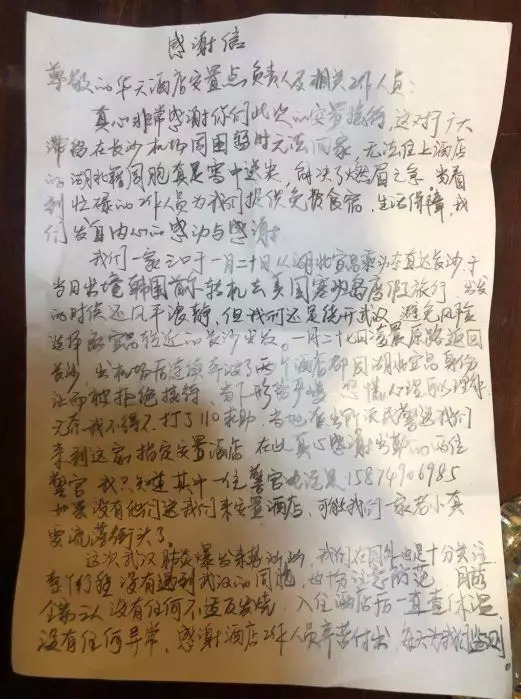 感谢信
尊敬的华天酒店安置点负责人及相关工作人员：
真心非常感谢你们此次的安置接待，这对于广大
滞留在长沙机场周围暂时无法回家，无法住上酒店
的湖北籍同胞真是雪中送炭，解决了燃眉之急，当看
到忙碌的工作人员为我们提供免费食宿，生活保障，我
们发自内心的感动与感谢。
我们一家三口于一月二十日从湖北宜昌乘火车直达长沙，于
当日出境韩国首尔转机去美国塞班岛度假旅行，出发
的时候还风平浪静，但我们还是绕开武汉，避免风险
选择离宜昌较近的长沙出发。一月二十七日凌晨原路返回
长沙，出机场后连续奔波了两个酒店都因湖北宜昌身份
证而被拒绝接待，当下形势严峻，恐慌人心可以理解
无奈我不得不打了110求助，当地派出所派民警送我们
来到这家指定安置酒店，在此真心感谢出勤的两位
警官，我只知道其中一位警官电话是15874906985
如果没有他们送我们来安置酒店，可能我们一家老小真
要流落街头了。
这次武汉肺炎爆发来势汹汹，我们在国外也是十分关注
没有遇到武汉的同胞，也十分注意防范，目前
全家三人没有任何不适及发烧，入住酒店后一直查体温
没有任何异常，感谢酒店工作人员辛苦付出，每天为我们监测。